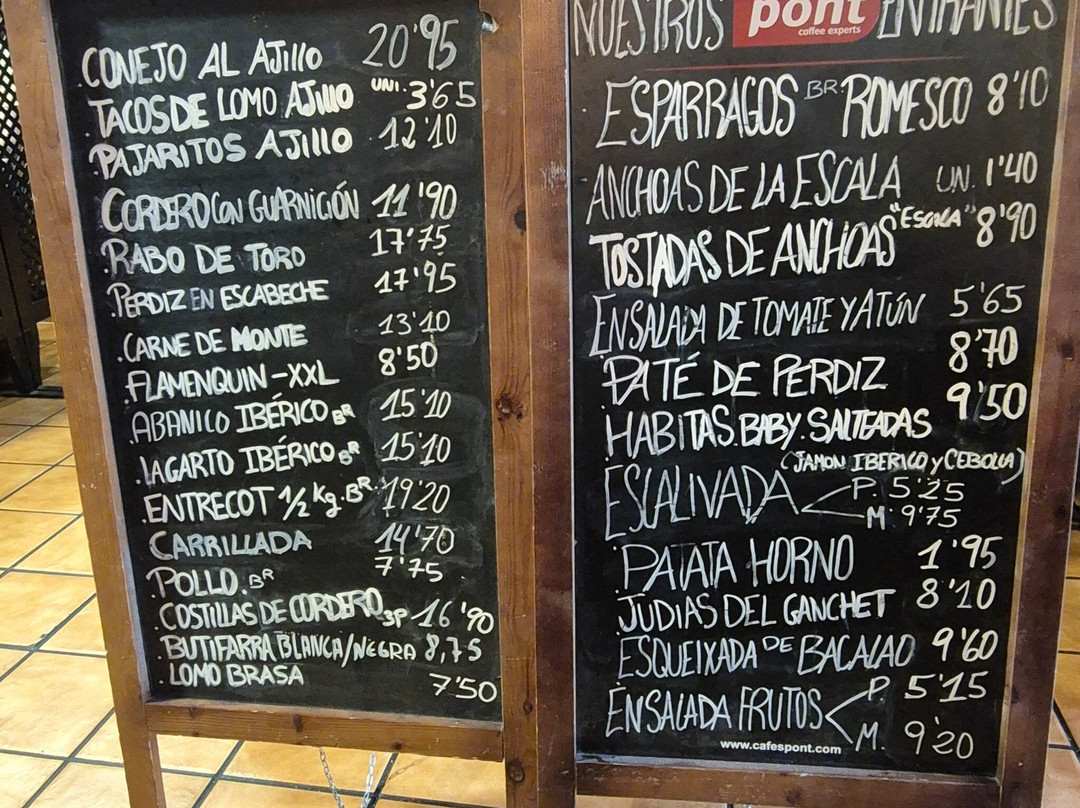 CONEJO AL AJILLO 20'95
TACOS DE LOMO AJILLO UNI. 3'65
PAJARITOS AJILLO 12'10
CORDERO CON GUARNICIÓN 11'90
.RABO DE TORO 17'75
.PERDIZ EN ESCABECHE 17'95
.CARNE DE MONTE 13'10
.FLAMENQUIN-XXL 8'50
.ABANICO IBÉRICO BR 15'10
.LAGARTO IBÉRICO BR 15'10
.ENTRECOT 1/2 kg. BR. 19'20
.CARRILLADA 14'70
.POLLO. BR 7'75
.COSTILLAS DE CORDERO 3P 16'90
.BUTIFARRA BLANCA/NEGRA 8,75
.LOMO BRASA 7'50
NUESTROS ENTRANTES
pont
coffee experts
ESPARRAGOS BR. ROMESCO 8'10
ANCHOAS DE LA ESCALA UN. 1'40
TOSTADAS DE ANCHOAS "ESCALA" 8'90
ENSALADA DE TOMATE Y ATÚN 5'65
PATÉ DE PERDIZ 8'70
HABITAS BABY. SALTEADAS 9'50
(JAMON IBERICO y CEBOLLA)
ESCALIVADA P. 5'25
M 9'75
PATATA HORNO 1'95
JUDIAS DEL GANCHET 8'10
ESQUEIXADA DE BACALAO 9'60
ENSALADA FRUTOS P. 5'15
M. 9'20
www.cafespont.com